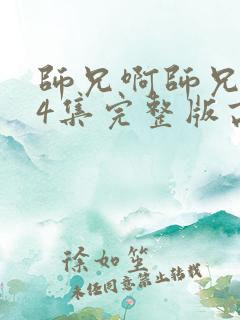 師兄啊師兄
4集完整版
徐如笙
未经同意禁止转载